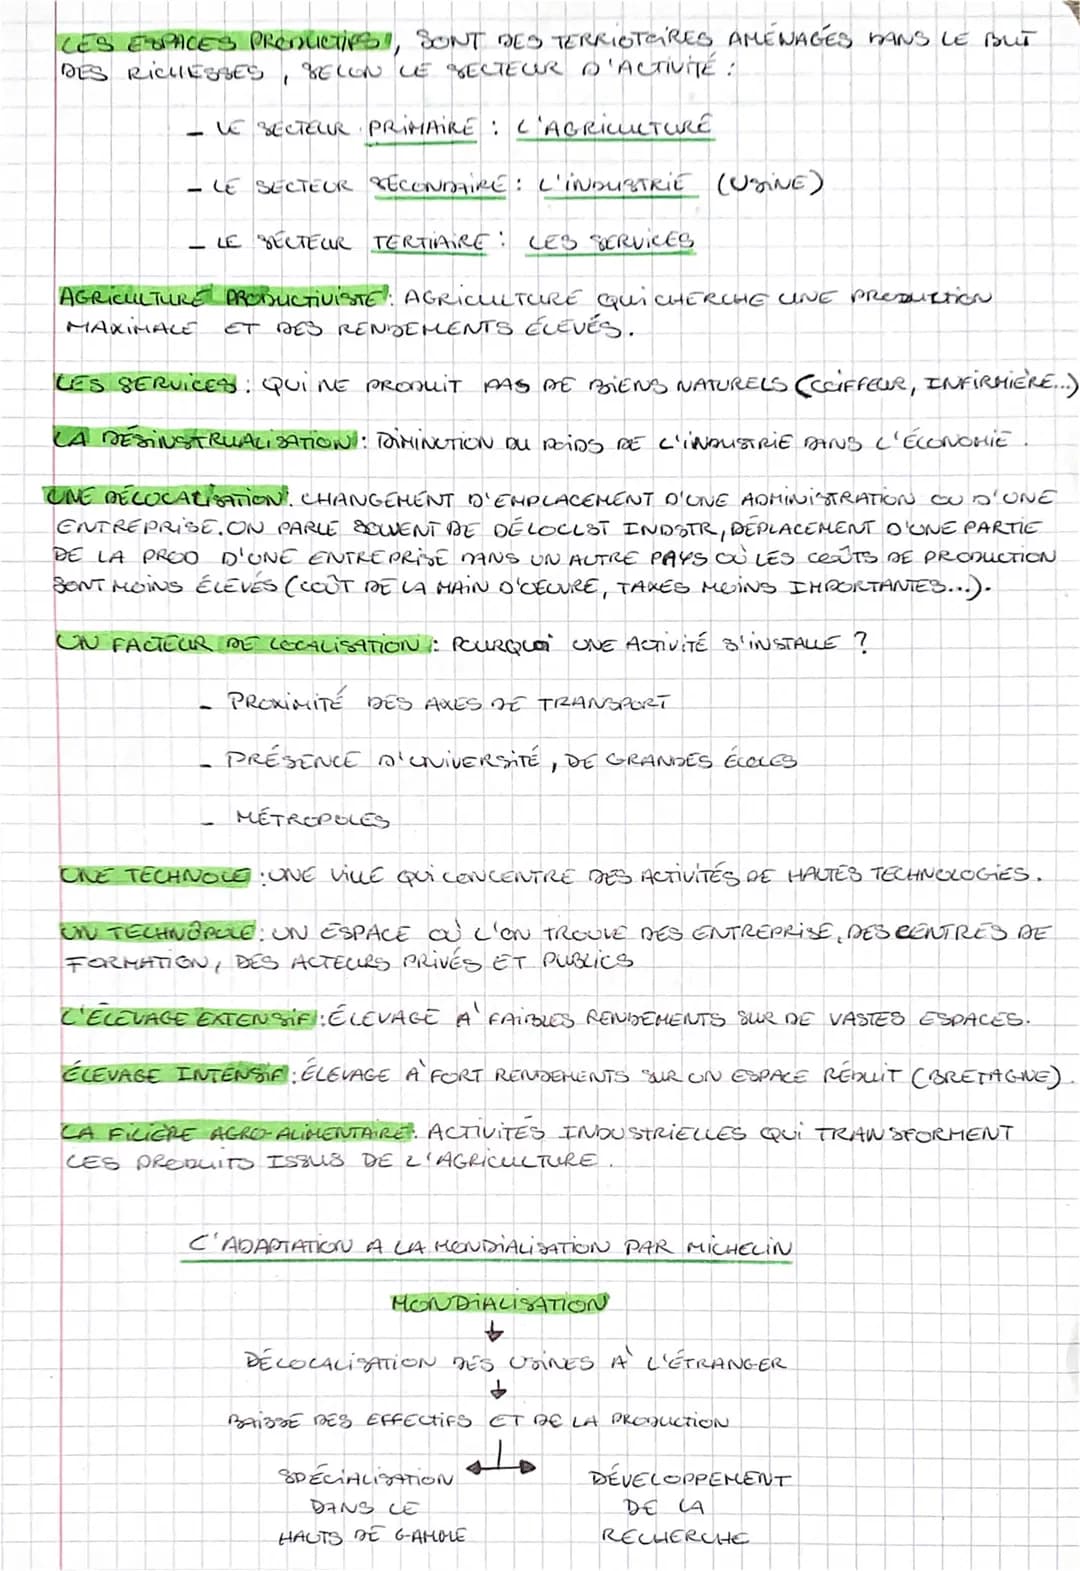 LES ESPACES PRODUCTIFS, SONT DES TERRIOTOIRES AMÉNAGÉS DANS LE BUT
DES RICHESSES, SELON LE SECTEUR D'ACTIVITÉ :
- LE SECTEUR PRIMAIRE : L'AGRICULTURE
- LE SECTEUR SECONDAIRE : L'INDUSTRIE (USINE)
- LE SECTEUR TERTIAIRE : LES SERVICES
AGRICULTURE PRODUCTIVISTE : AGRICULTURE QUI CHERCHE UNE PRODUCTION
MAXIMALE ET DES RENDEMENTS ÉLEVÉS.
LES SERVICES : QUI NE PRODUIT PAS DE BIENS NATURELS (COIFFEUR, INFIRMIÈRE...)
LA DÉSINSTRUALISATION : DIMINUTION DU POIDS DE L'INDUSTRIE DANS L'ÉCONOMIE.
UNE DÉLOCALISATION : CHANGEMENT D'EMPLACEMENT D'UNE ADMINISTRATION OU D'UNE
ENTREPRISE. ON PARLE SOUVENT DE DÉLOCLST INDSTR, DÉPLACEMENT D'UNE PARTIE
DE LA PROD D'UNE ENTREPRISE DANS UN AUTRE PAYS OÙ LES COÛTS DE PRODUCTION
SONT MOINS ÉLEVÉS (COÛT DE LA MAIN D'OEUVRE, TAXES MOINS IMPORTANTES...).
UN FACTEUR DE LOCALISATION : POURQUOI UNE ACTIVITÉ S'INSTALLE ?
- PROXIMITÉ DES AXES DE TRANSPORT
- PRÉSENCE D'UNIVERSITÉ, DE GRANDES ÉCOLES
- MÉTROPOLES
UNE TECHNOLE : UNE VILLE QUI CONCENTRE DES ACTIVITÉS DE HAUTES TECHNOLOGIES.
UN TECHNÔPOLE : UN ESPACE OÙ L'ON TROUVE DES ENTREPRISE, DES CENTRES DE
FORMATION, DES ACTEURS PRIVÉS ET PUBLICS
L'ÉLEVAGE EXTENSIF : ÉLEVAGE À FAIBLES RENDEMENTS SUR DE VASTES ESPACES.
ÉLEVAGE INTENSIF : ÉLEVAGE À FORT RENDEMENTS SUR UN ESPACE RÉDUIT (BRETAGNE).
LA FILIÈRE AGRO-ALIMENTAIRE : ACTIVITÉS INDUSTRIELLES QUI TRANSFORMENT
LES PRODUITS ISSUS DE L'AGRICULTURE.
L'ADAPTATION A LA MONDIALISATION PAR MICHELIN
MONDIALISATION
DÉLOCALISATION DES USINES À L'ÉTRANGER
BAISSE DES EFFECTIFS ET DE LA PRODUCTION
SPÉCIALISATION
DANS LE
HAUTS DE GAMME
DÉVELOPPEMENT
DE LA
RECHERCHE